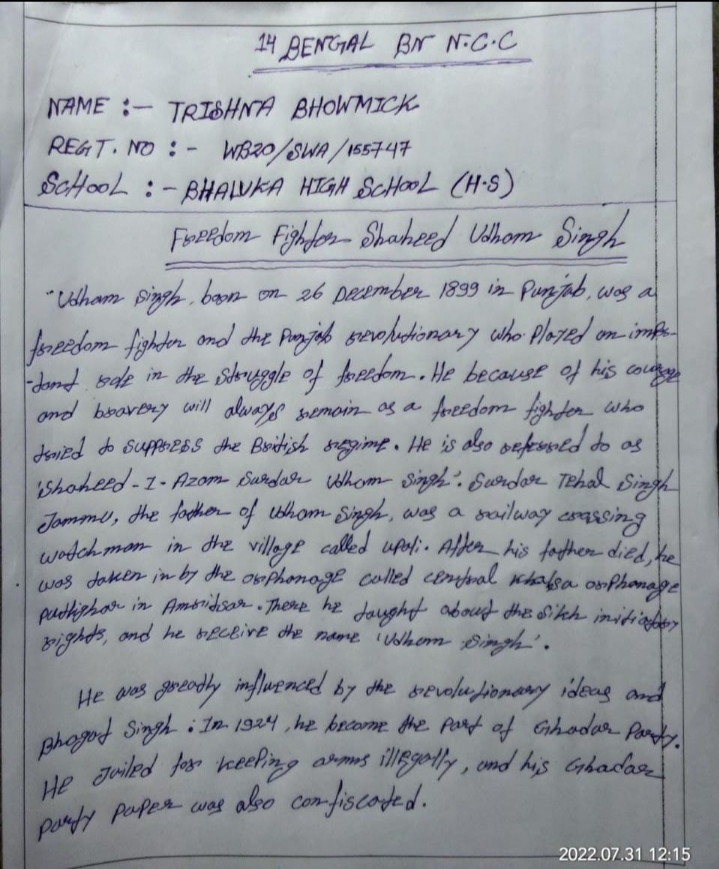 14 BENGAL BN N.C.C
NAME :- TRISHNA BHOWMICK
REGT. NO :- WB20/SWA/155747
SCHOOL :- BHALUKA HIGH SCHOOL (H.S)
Freedom Fighter Shaheed Udham Singh
"Udham Singh, born on 26 December 1899 in Punjab, was a
freedom fighter and the Punjab revolutionary who Played an impor-
-tant role in the struggle of freedom. He because of his courage
and bravery will always remain as a freedom fighter who
tried to suppress the British regime. He is also referred to as
'Shaheed-I-Azam Sardar Udham Singh'. Surdar Tehal Singh
Jammu, the father of Udham Singh, was a railway crossing
watchman in the village called upali. After his father died, he
was taken in by the orphonage called central Khalsa orphonage
Putlighar in Amritsar. There he taught about the Sikh initiatory
rights, and he receive the name 'Udham Singh'.
He was greatly influenced by the revolutionary ideas and
Bhagat Singh. In 1924, he became the Part of Ghadar Party.
He Jailed for keeping arms illegally, and his Ghadar
Party Paper was also confiscated.
2022.07.31 12:15